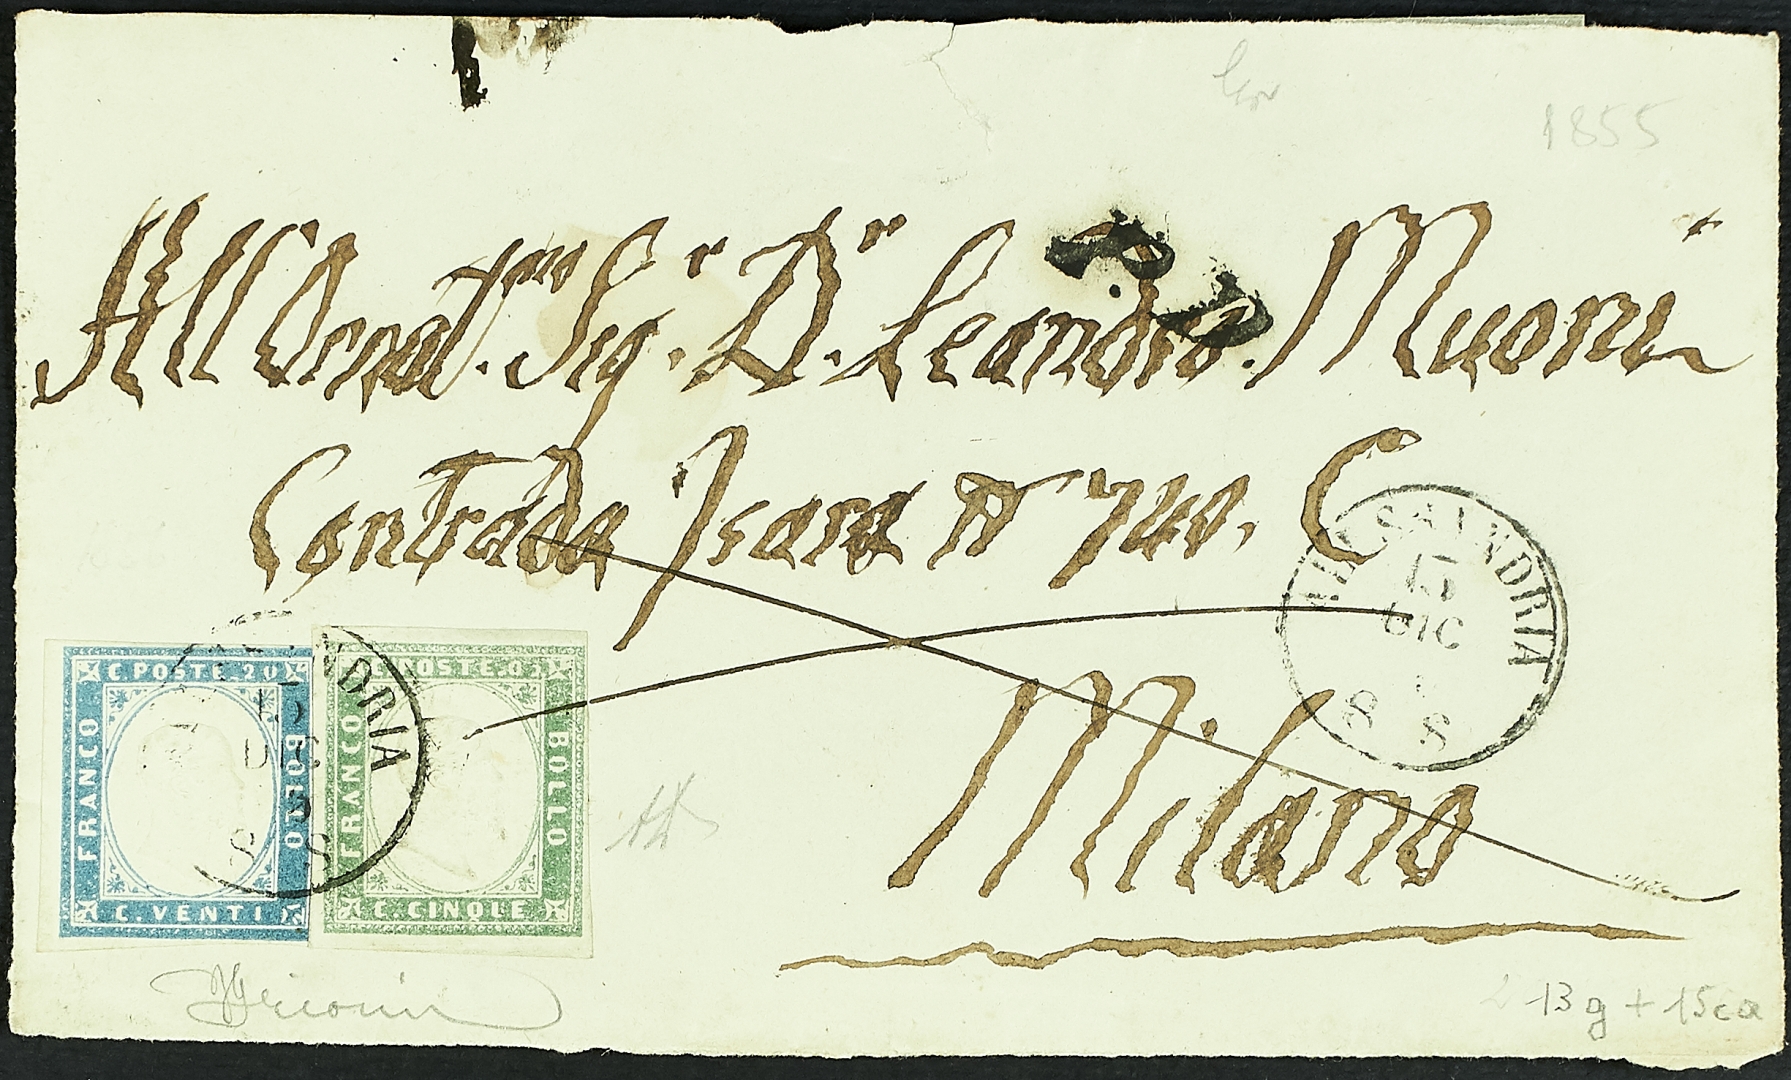 1855
All'Ornat.mo Sig.r D.r Leandro Muoni
P.D.
Contrada Isara N 740. C
ALESSANDRIA
15
DIC
8 S
Milano
C. POSTE. 20
FRANCO
BOLLO
C. VENTI
C. POSTE. 05
FRANCO
BOLLO
C. CINQUE
ALESSANDRIA
15
DIC
8 S
13g + 15ca